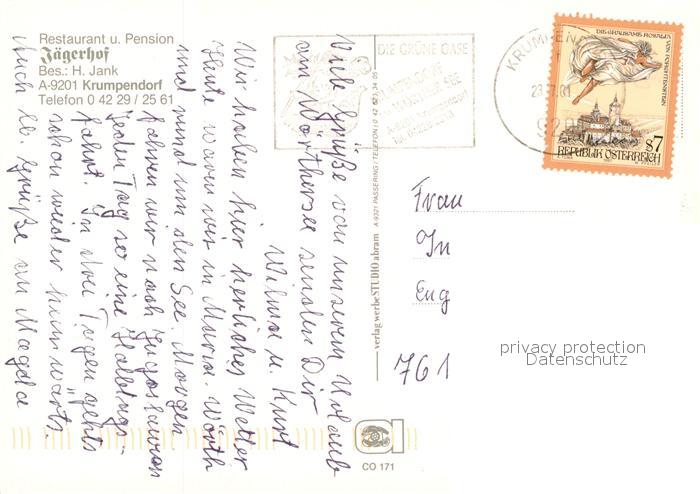 Restaurant u. Pension
Jägerhof
Bes.: H. Jank
A-9201 Krumpendorf
Telefon 0 42 29 / 25 61
Viele Grüße von unserem Urlaub
am Wörthersee senden Dir
Wilma u. Kurt
Wir haben hier herliches Wetter
Heute waren wir in Maria Wörth
und rund um den See. Morgen
fahren wir nach Jugoslavien
jeden Tag so eine Halbtags-
fahrt. In drei Tagen gehts
schon wieder heimwärts.
Auch lb. Grüße an Magda
verlag werbeSTUDIO abram A-9321 PASSERING / TELEFON (0 42 62) 34 05
CO 171
DIE GRÜNE OASE
KRUMPEN
92
DIE GRAUSAME ROSALIA
VON FORCHTENSTEIN
S7
REPUBLIK ÖSTERREICH
Frau
In
Eug
761
privacy protection
Datenschutz